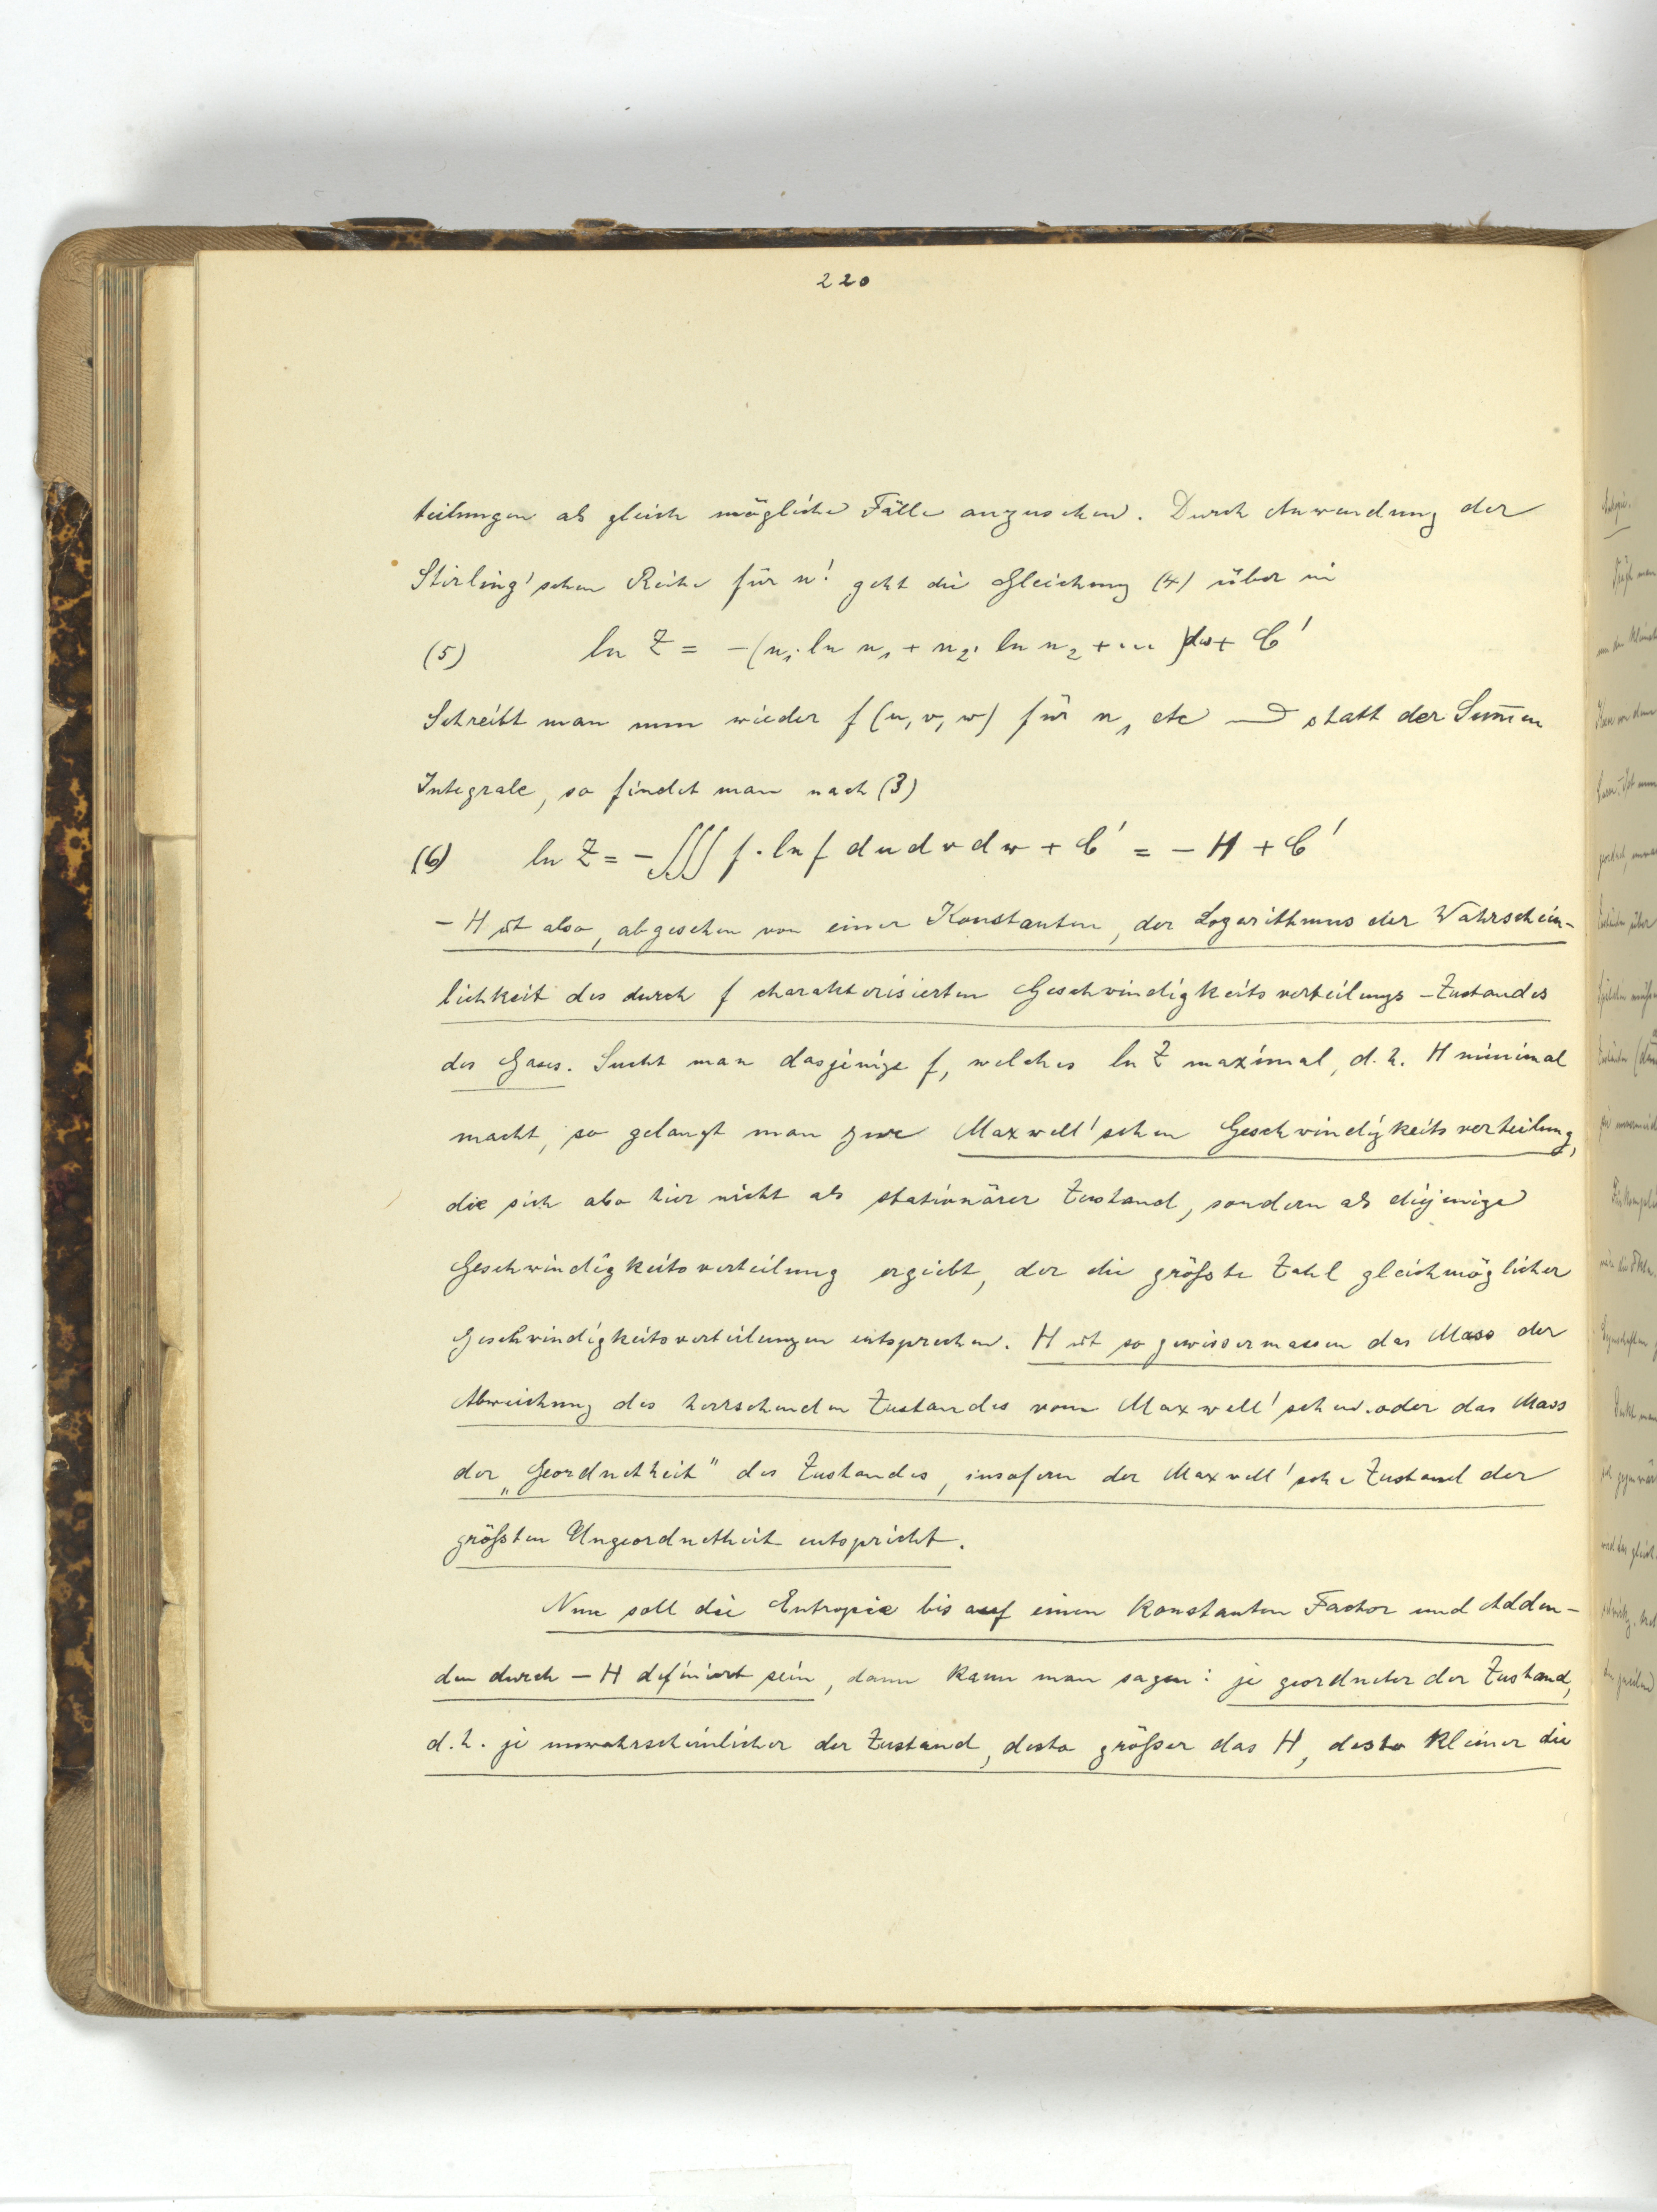 220
teilungen als gleich mögliche Fälle anzusehen. Durch Anwendung der
Stirling'schen Reihe für n! geht die Gleichung (4) über in
(5) ln Z = -(n₁. ln n₁ + n₂. ln n₂ + ... )dω + C'
Schreibt man nun wieder f (u, v, w) für n₁ etc statt der Sum̄en
Integrale, so findet man nach (3)
(6) ln Z = - ∭ f . ln f du dv dw + C' = - H + C'
- H ist also, abgesehen von einer Konstanten, der Logarithmus der Wahrschein-
lichkeit des durch f charakterisierten Geschwindigkeitsverteilungs-Zustandes
des Gases. Sucht man dasjenige f, welches ln Z maximal, d.h. H minimal
macht, so gelangt man zur Maxwell'schen Geschwindigkeitsverteilung,
die sich also hier nicht als stationärer Zustand, sondern als diejenige
Geschwindigkeitsverteilung ergiebt, der die größte Zahl gleichmöglicher
Geschwindigkeitsverteilungen entsprechen. H ist so gewissermassen das Mass der
Abweichung des herrschenden Zustandes vom Maxwell'schen oder das Mass
der „Geordnetheit" des Zustandes, insofern der Maxwell'sche Zustand der
größten Ungeordnetheit entspricht.
Nun soll die Entropie bis auf einen konstanten Factor und Adden-
den durch - H definiert sein, dann kann man sagen: je geordneter der Zustand,
d.h. je unwahrscheinlicher der Zustand, desto größer das H, desto kleiner die